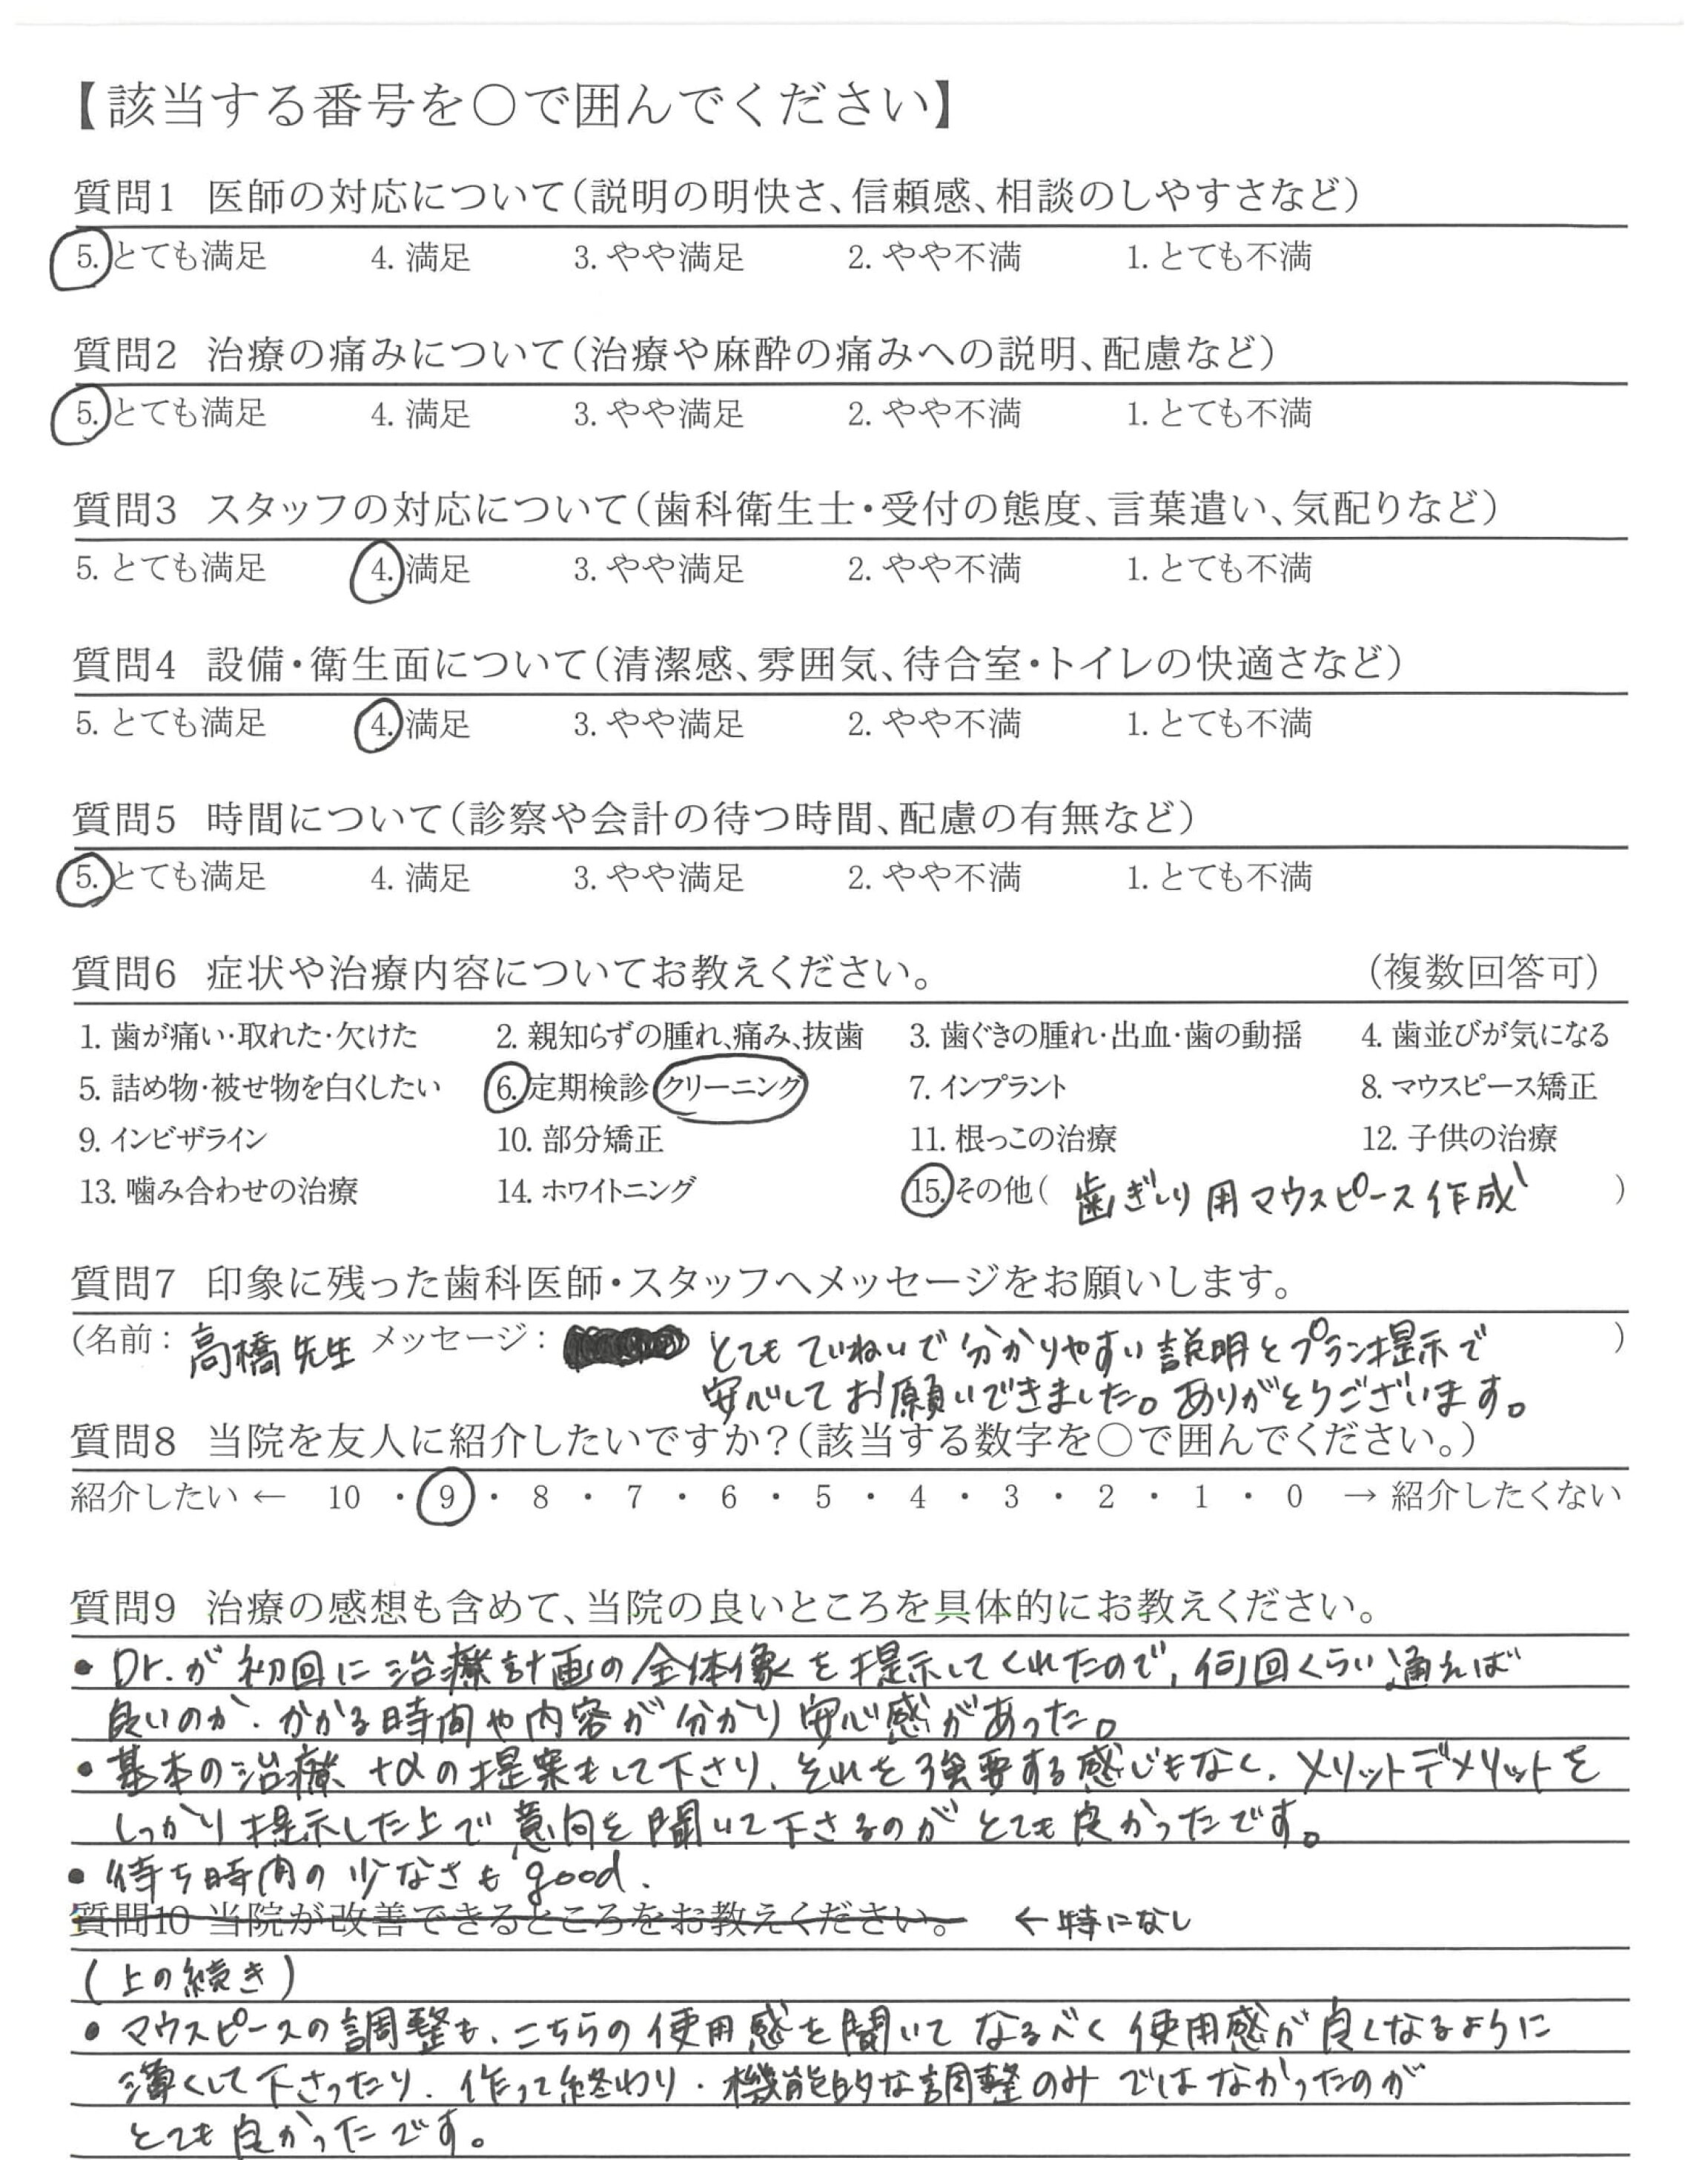 【該当する番号を〇で囲んでください】
質問1 医師の対応について(説明の明快さ、信頼感、相談のしやすさなど)
5. とても満足 4. 満足 3. やや満足 2. やや不満 1. とても不満
質問2 治療の痛みについて(治療や麻酔の痛みへの説明、配慮など)
5. とても満足 4. 満足 3. やや満足 2. やや不満 1. とても不満
質問3 スタッフの対応について(歯科衛生士・受付の態度、言葉遣い、気配りなど)
5. とても満足 4. 満足 3. やや満足 2. やや不満 1. とても不満
質問4 設備・衛生面について(清潔感、雰囲気、待合室・トイレの快適さなど)
5. とても満足 4. 満足 3. やや満足 2. やや不満 1. とても不満
質問5 時間について(診察や会計の待つ時間、配慮の有無など)
5. とても満足 4. 満足 3. やや満足 2. やや不満 1. とても不満
質問6 症状や治療内容についてお教えください。 (複数回答可)
1. 歯が痛い・取れた・欠けた 2. 親知らずの腫れ、痛み、抜歯 3. 歯ぐきの腫れ・出血・歯の動揺 4. 歯並びが気になる
5. 詰め物・被せ物を白くしたい 6. 定期検診 クリーニング 7. インプラント 8. マウスピース矯正
9. インビザライン 10. 部分矯正 11. 根っこの治療 12. 子供の治療
13. 噛み合わせの治療 14. ホワイトニング 15. その他( 歯ぎしり用マウスピース作成 )
質問7 印象に残った歯科医師・スタッフへメッセージをお願いします。
(名前: 高橋先生 メッセージ: とてもていねいで分かりやすい説明とプラン提示で )
安心してお願いできました。ありがとうございます。
質問8 当院を友人に紹介したいですか?(該当する数字を〇で囲んでください。)
紹介したい ← 10 ・ 9 ・ 8 ・ 7 ・ 6 ・ 5 ・ 4 ・ 3 ・ 2 ・ 1 ・ 0 → 紹介したくない
質問9 治療の感想も含めて、当院の良いところを具体的にお教えください。
・Dr.が初回に治療計画の全体像を提示してくれたので、何回くらい通えば
良いのか、かかる時間や内容が分かり安心感があった。
・基本の治療+αの提案もして下さり、それを強要する感じもなく、メリットデメリットを
しっかり提示した上で意向を聞いて下さるのがとても良かったです。
・待ち時間の少なさもgood.
質問10 当院が改善できるところをお教えください。 ←特になし
(上の続き)
・マウスピースの調整も、こちらの使用感を聞いてなるべく使用感が良くなるように
薄くして下さったり、作って終わり・機能的な調整のみではなかったのが
とても良かったです。